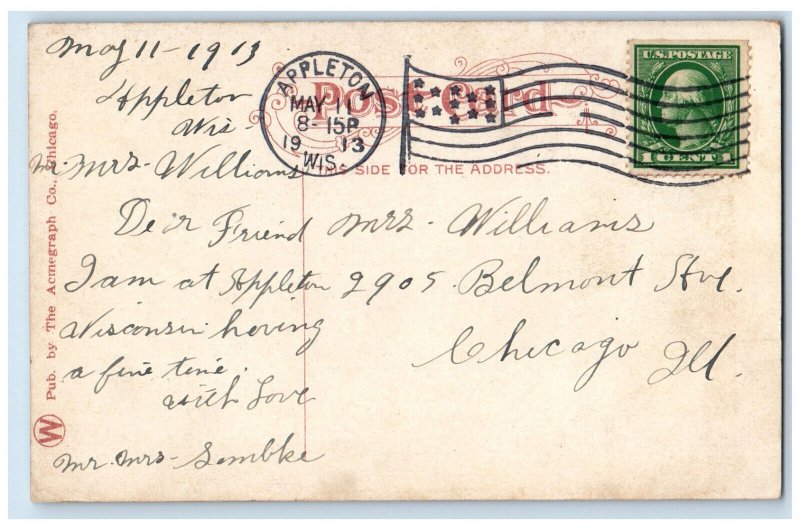 May 11 - 1913
Appleton
Wis -
Mr. Mrs. Williams
Dear Friend
I am at Appleton
Wisconsin having
a fine time.
with Love
Mr. Mrs - Lembke
Post Card
THIS SIDE FOR THE ADDRESS.
APPLETON
MAY 11
8-15P
1913
WIS.
U.S. POSTAGE
1 CENT 1
Mrs. Williams
2905 Belmont Ave.
Chicago Ill.
Pub. by The Acmegraph Co., Chicago.
W